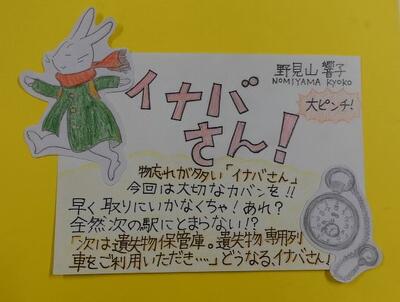 野見山 響子
NOMIYAMA KYOKO
イナバ
さん!
大ピンチ!
物忘れが多い「イナバさん」
今回は大切なカバンを!!
早く取りにいかなくちゃ!あれ?
全然次の駅にとまらない!?
「次は遺失物保管庫。遺失物専用列
車をご利用いただき……」どうなる、イナバさん